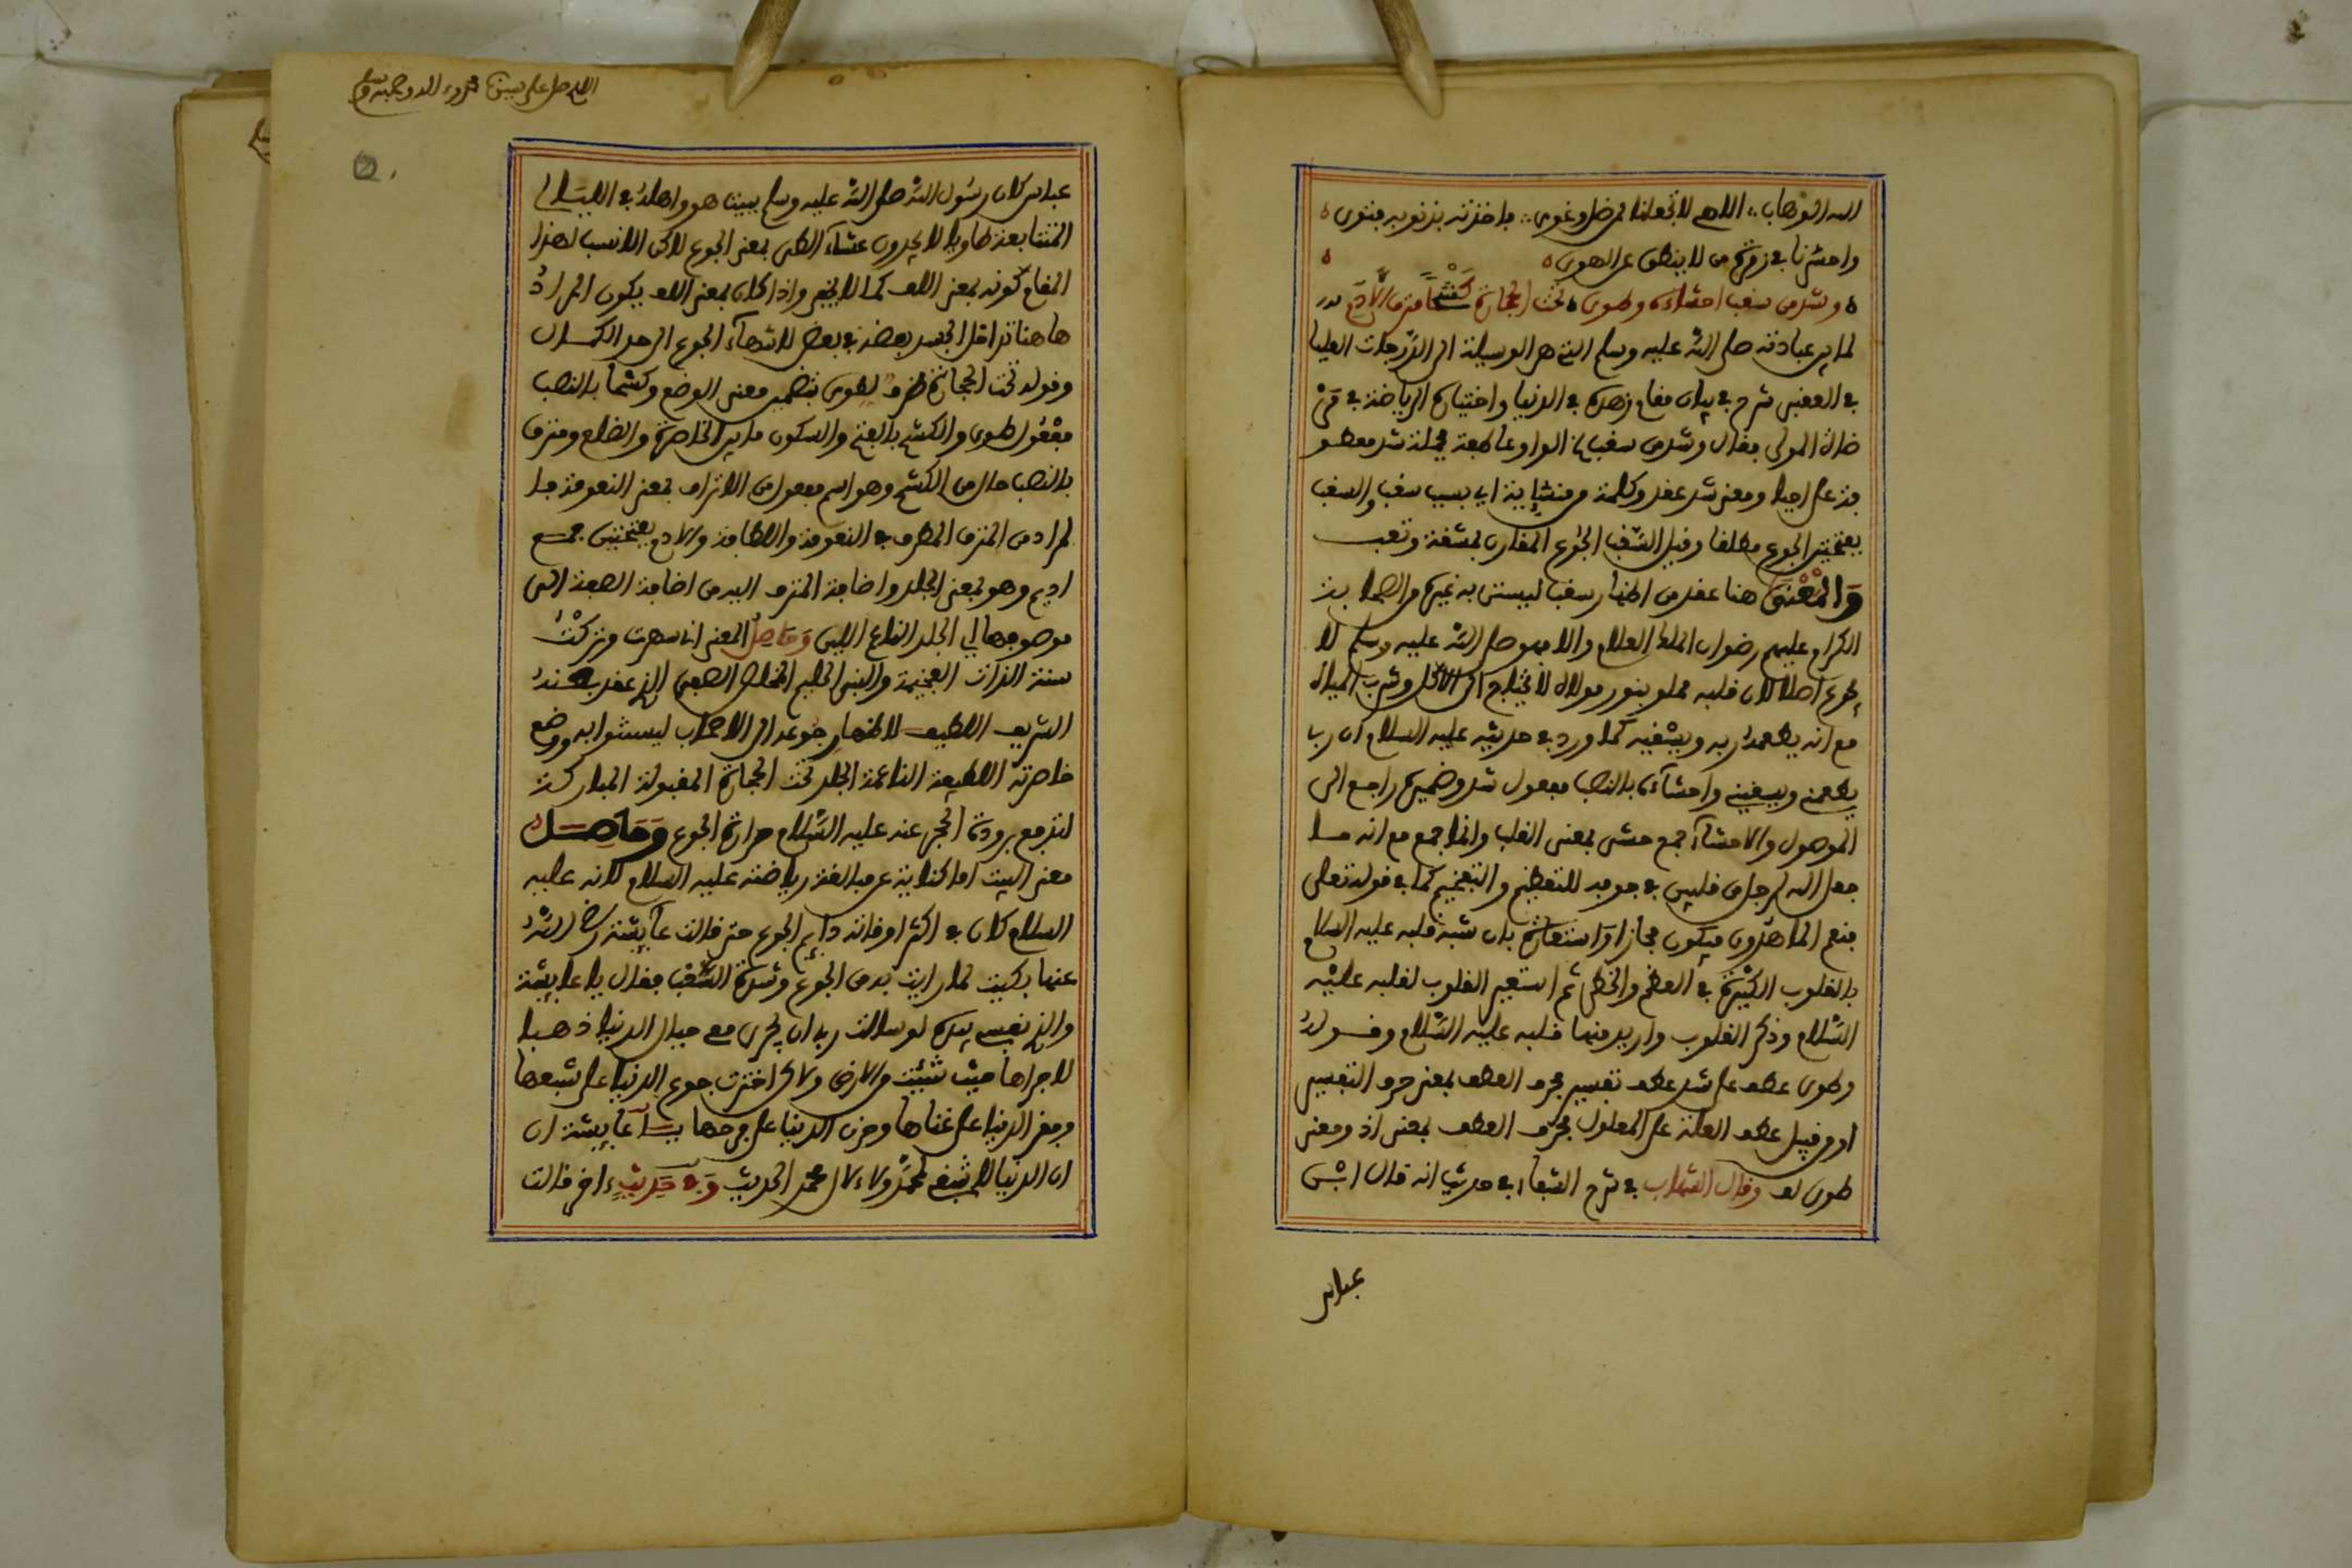 الله الوهاب ∴ اللهم لا تجعلنا ممن ضل وغوى ∴ فاخذته بذنوبه فثوى
واحشرنا في زمرة من لا ينطق عن الهوى
وشد من سغب احشاءه وطوى تحت الحجارة كشحا مترف الادم
لما بين عبادته صلى الله عليه وسلم التي هي الوسيلة الى الدرجات العليا
في العقبى شرع في بيان مقام زهده في الدنيا واختياره الرياضة في
المولى فقال وشد من سغب الواو عاطفة جملة شد معطو
فة على احيا ومعنى شد عقد وكلمة من منشاية اي بسبب سغب والسغب
بفتحتين الجوع مطلقا وقيل السغب الجوع المقارن بمشقة وتعب
والمعنى هنا عقد من اظهار سغب ليستن به غيره من الصحابة
الكرام عليهم رضوان الملك العلام والا فهو صلى الله عليه وسلم لا
يجوع اصلا لان قلبه مملو بنور مولاه لا يحتاج الى الاكل وشرب المياه
مع انه يطعمه ربه ويسقيه كما ورد في حديثه عليه السلام ان ربي
يطعمني ويسقيني واحشاءه بالنصب مفعول شد وضميره راجع الى
الموصول والاحشاء جمع حشى بمعنى القلب وانما جمع مع انه ما
جعل الله لرجل من قلبين في جوفه للتعظيم والتفخيم كما في قوله تعلى
فنعم الماهدون فيكون مجازا او استعارة بان شبه قلبه عليه السلام
بالقلوب الكثيرة في العظم والخطر ثم استعير القلوب لقلبه عليه
السلام وذكر القلوب واريد منها قلبه عليه السلام وقوله
وطوى عطف على شد عطف تفسير بحرف العطف بمعنى حرف التفسير
او من قبيل عطف العلة على المعلول بحرف العطف بمعنى اذ ومعنى
طوى لف وقال الشهاب في شرح الشفا في حديث انه قال ابن
عباس
اللهم صل على سيدنا محمد وءاله وصحبه وسلم
عباس كان رسول الله صلى الله عليه وسلم يبيت هو واهله في الليالي
المتتابعة طاويا لا يجدون عشاء الطى بمعنى الجوع لاكن الانسب لهذا
المقام كونه بمعنى اللف كما لا يخفى واذا كان بمعنى اللف يكون المراد
هاهنا تداخل الجسد بعضه في بعض لانتهاء الجوع الى حد الكمال
وقوله تحت الحجارة ظرف لطوى بتضمين معنى الوضع وكشحا بالنصب
مفعول طوى والكشح بالفتح والسكون ما بين الخاصرة والضلع ومترف
بالنصب حال من الكشح وهو اسم مفعول من الاتراف بمعنى النعومة فا
لمراد من المترف المطرف في النعومة واللطافة والادم بفتحتين جمع
اديم وهو بمعنى الجلد واضافة المترف اليه من اضافة الصفة الى
موصوفها اي الجلد الناعم اللين وحاصل المعنى انا سهرت وتركت
سنة الذات الفخيمة والنبي الحليم الذي عقد بطنه
الشريف اللطيف لاظهار جوعه الى الاصحاب ليستنوا به ووضع
خاصرته اللطيفة الناعمة الجلد تحت الحجارة المقبولة المباركة
لتدفع برودة الحجر عنه عليه السلام حرارة الجوع وحاصل
معنى البيت اما كناية عن مبالغة رياضته عليه السلام لانه عليه
السلام كان في اكثر اوقاته دايم الجوع حتى قالت عايشة رضي الله
عنها بكيت لما رايت به من الجوع وشدة السغب فقال يا عايشة
والذي نفسي بيده لو سالت ربي ان يجري معي جبال الدنيا ذهبا
لاجراها حيث شئت من الارض ولاكن اخترت جوع الدنيا على شبعها
وفقر الدنيا على غناها وحزن الدنيا على فرحها يا عايشة ان
ان الدنيا لا تنبغي لمحمد ولا ءال محمد الحديث وفي حديث ءاخر قالت